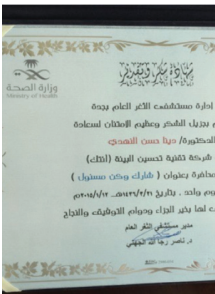 شهادة شكر وتقدير
وزارة الصحة
Ministry of Health
إدارة مستشفى الثغر العام بجدة
بجزيل الشكر وعظيم الإمتنان لسعادة
الدكتورة/ دينا حسن النهدي
شركة تقنية تحسين البيئة
بعنوان ( شارك وكن مسئول )
واحد . بتاريخ
لها بخير الجزاء ودوام التوفيق والنجاح
مدير مستشفى الثغر العام
د. ناصر رجاالله الجهني